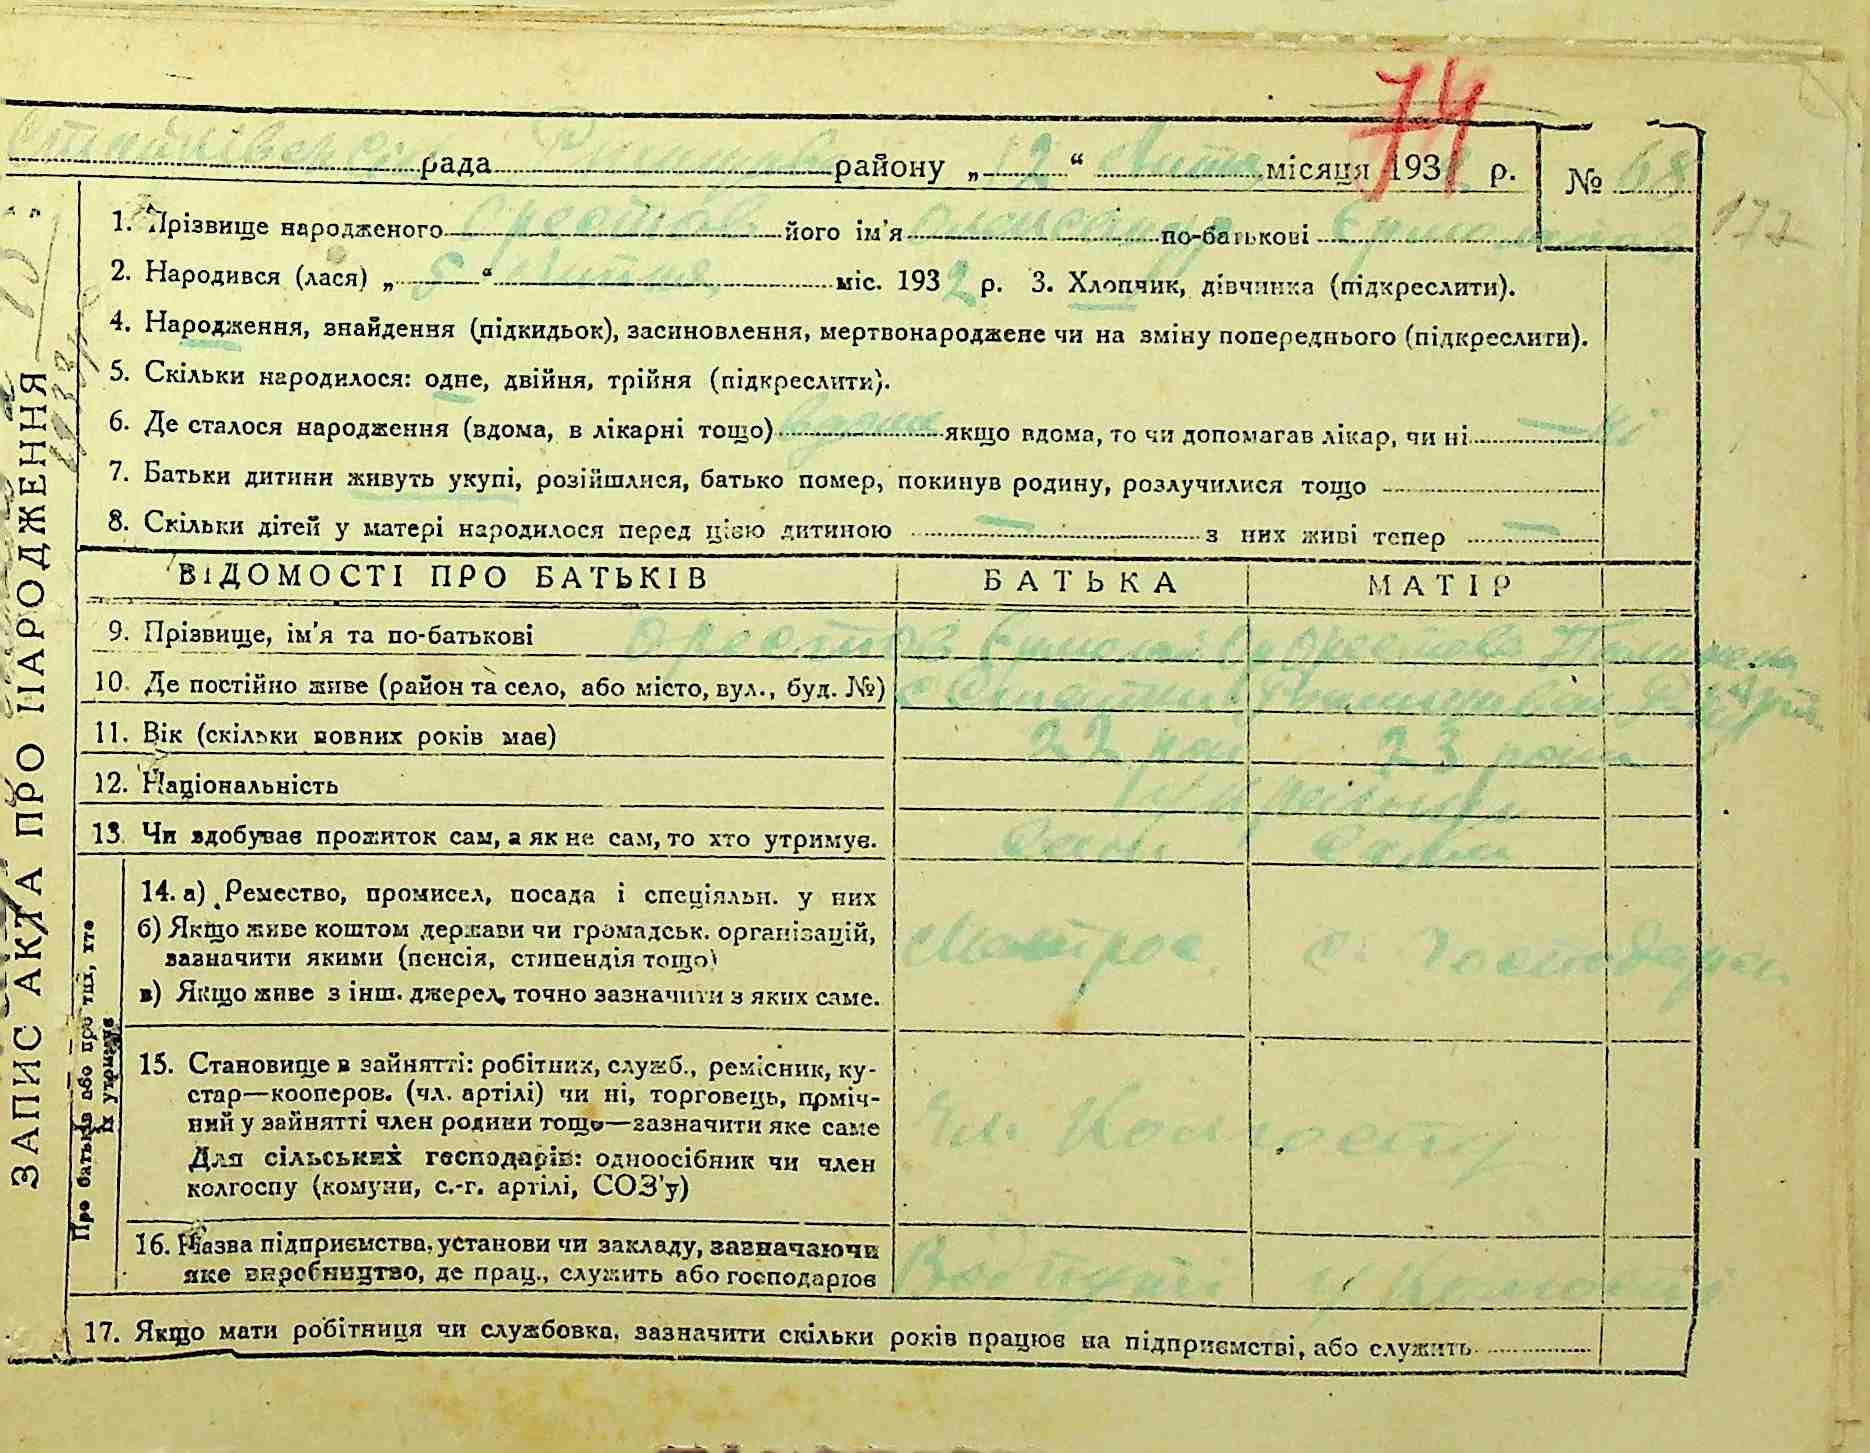 74
рада району „12“ Липня місяця 1932 р. № 68
177
1. Прізвище народженого Орестов його ім'я Олександр по-батькові
2. Народився (лася) „8“ Липня міс. 1932 р. 3. Хлопчик, дівчинка (підкреслити).
4. Народження, знайдення (підкидьок), засиновлення, мертвонароджене чи на зміну попереднього (підкреслити).
5. Скільки народилося: одне, двійня, трійня (підкреслити).
6. Де сталося народження (вдома, в лікарні тощо) вдома якщо вдома, то чи допомагав лікар, чи ні — ні
7. Батьки дитини живуть укупі, розійшлися, батько помер, покинув родину, розлучилися тощо
8. Скільки дітей у матері народилося перед цією дитиною — з них живі тепер —
ЗАПИС АКТА ПРО НАРОДЖЕННЯ
ВІДОМОСТІ ПРО БАТЬКІВ БАТЬКА МАТІР
9. Прізвище, ім'я та по-батькові Орестов Орестова
10. Де постійно живе (район та село, або місто, вул., буд. №)
11. Вік (скільки повних років має) 22 рок 23 роки
12. Національність Українці
13. Чи здобуває прожиток сам, а як не сам, то хто утримує. Сам Сама
Про батьків або про тих, хто їх утримує
14. а) Ремество, промисел, посада і спеціяльн. у них
б) Якщо живе коштом держави чи громадськ. організацій,
зазначити якими (пенсія, стипендія тощо)
Матрос Господарка
в) Якщо живе з інш. джерел, точно зазначити з яких саме.
15. Становище в зайнятті: робітник, служб., ремісник, ку-
стар—кооперов. (чл. артілі) чи ні, торговець, поміч-
ний у зайнятті член родини тощо—зазначити яке саме
Чл. Колгоспу
Для сільських господарів: одноосібник чи член
колгоспу (комуни, с.-г. артілі, СОЗ'у)
16. Назва підприємства, установи чи закладу, зазначаючи
яке виробництво, де прац., служить або господарює
17. Якщо мати робітниця чи службовка, зазначити скільки років працює на підприємстві, або служить